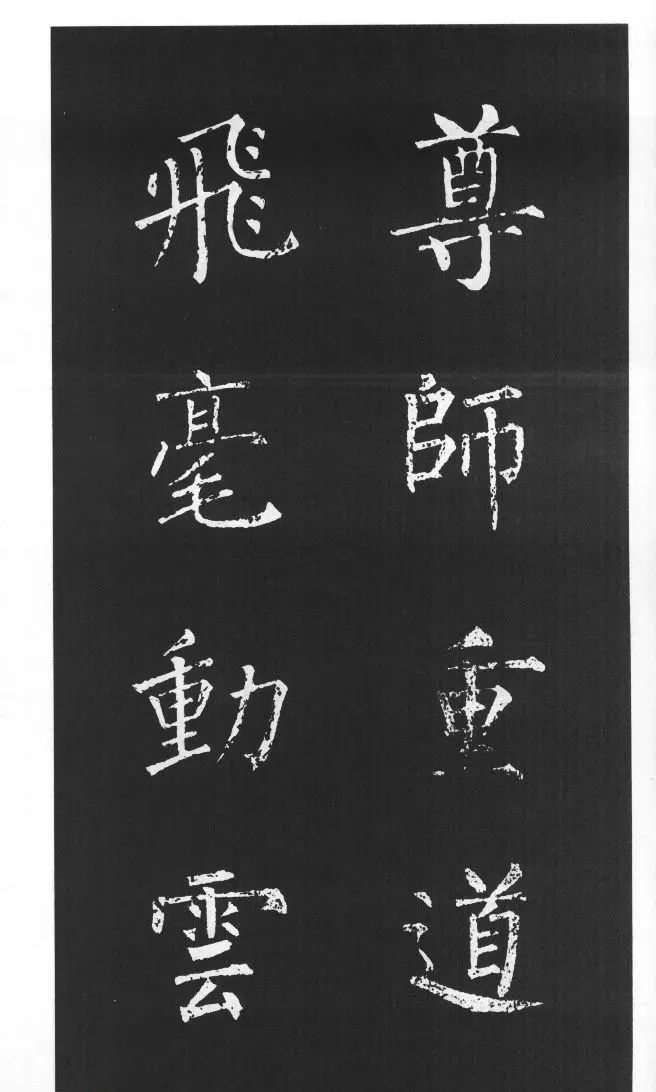 尊師重道
飛毫動雲